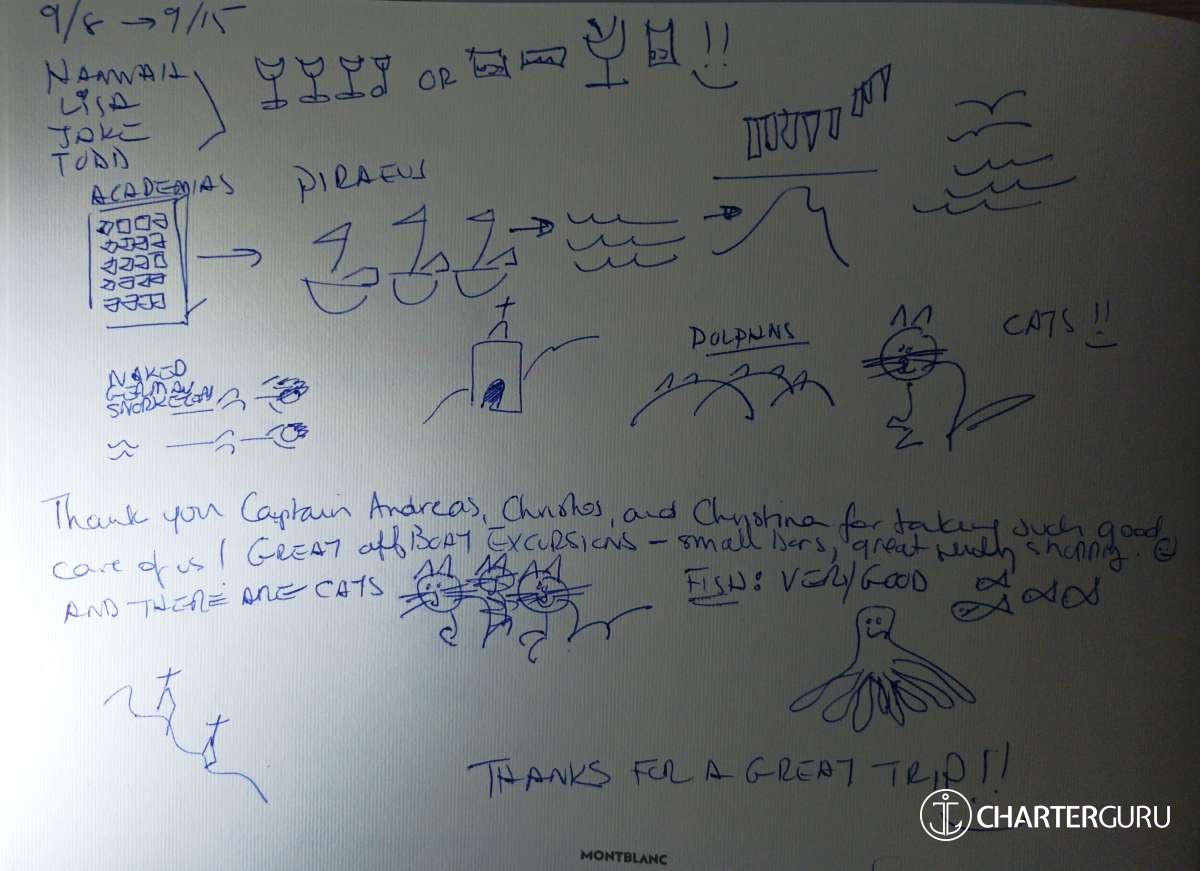 9/8 → 9/15
HANNAH
LISA
JAKE
TODD
OR !!
ACADEMIAS
PIRAEUS
DOLPHINS
CATS !!
NAKED
GERMAN
Thank you Captain Andreas, Christos, and Christina for taking such good
care of us! GREAT off BOAT EXCURSIONS – small bars, great shopping.
AND THERE ARE CATS
FISH: VERY GOOD
THANKS FOR A GREAT TRIP!!
CHARTERGURU
MONTBLANC